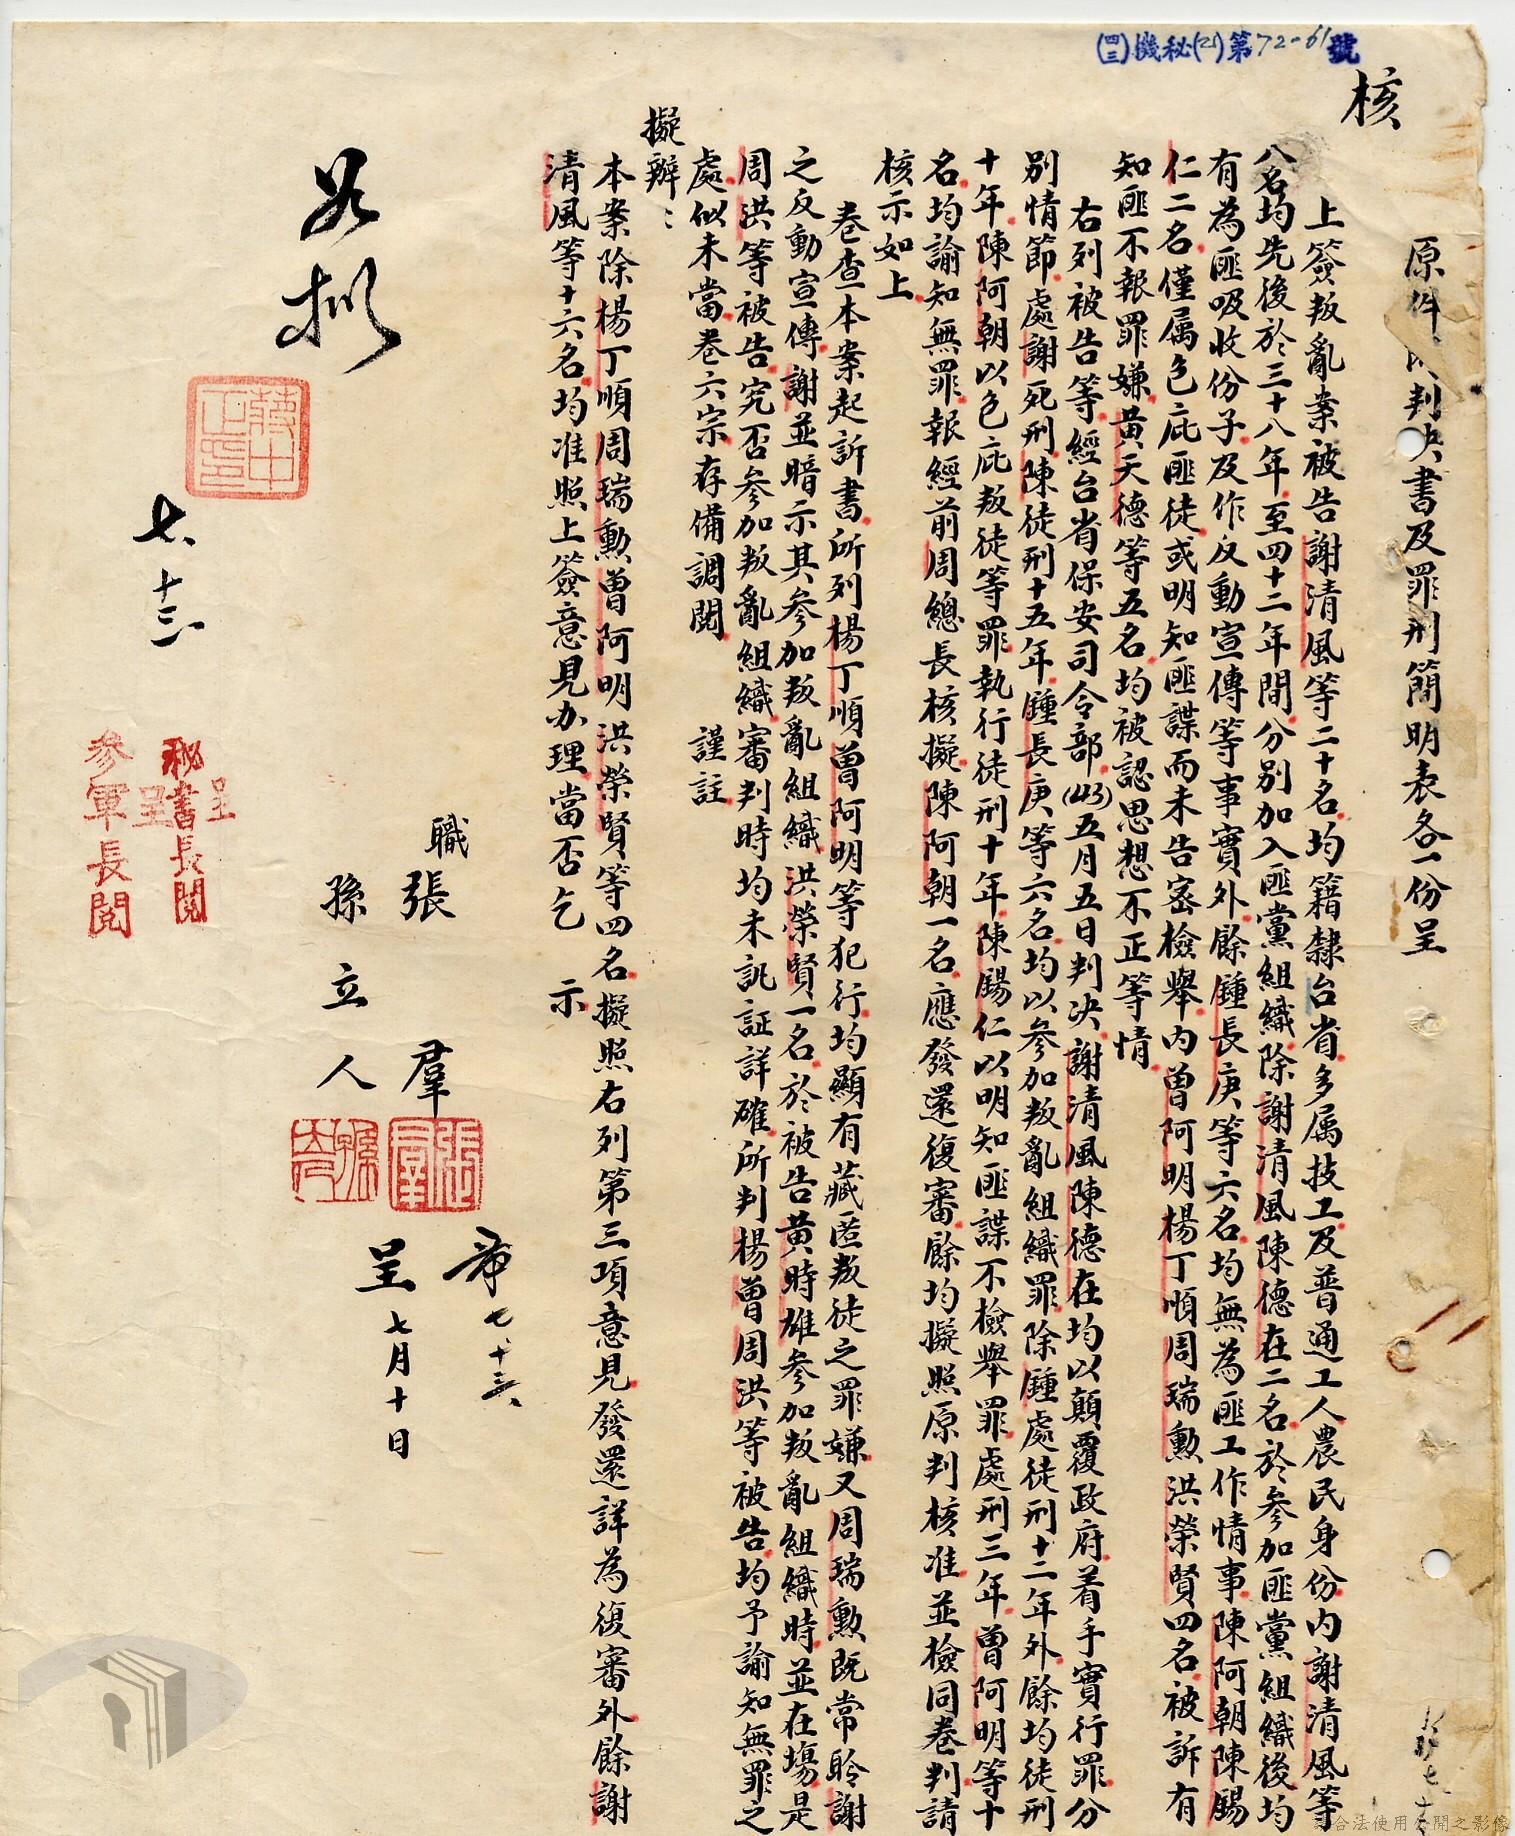 (四三)機秘(21)第72-61號
核
原件附判決書及罪刑簡明表各一份呈
上簽叛亂案被告謝清風等二十名均籍隸台省多属技工及普通工人農民身份內謝清風等
八名均先後於三十八年至四十二年間分別加入匪黨組織除謝清風陳德在二名於參加匪黨組織後均
有為匪吸收份子及作反動宣傳等事實外餘鍾長庚等六名均無為匪工作情事陳阿朝陳賜
仁二名僅属包庇匪徒或明知匪諜而未告密檢舉內曾阿明楊丁順周瑞勲洪榮賢四名被訴有
知匪不報罪嫌黃天德等五名均被認思想不正等情
右列被告等經台省保安司令部(43)五月五日判決謝清風陳德在均以顛覆政府着手實行罪分
別情節處謝死刑陳徒刑十五年鍾長庚等六名均以參加叛亂組織罪除鍾處徒刑十二年外餘均徒刑
十年陳阿朝以包庇叛徒等罪執行徒刑十年陳賜仁以明知匪諜不檢舉罪處刑三年曾阿明等十
名均諭知無罪報經前周總長核擬陳阿朝一名應發還復審餘均擬照原判核准並檢同卷判請
核示如上
卷查本案起訴書所列楊丁順曾阿明等犯行均顯有藏匿叛徒之罪嫌又周瑞勲既常聆謝
之反動宣傳謝並暗示其參加叛亂組織洪榮賢一名於被告黃時雄參加叛亂組織時並在場是
周洪等被告究否參加叛亂組織審判時均未訊証詳確所判楊曾周洪等被告均予諭知無罪之
處似未當卷六宗存備調閱　謹註
擬辦：
本案除楊丁順周瑞勲曾阿明洪榮賢等四名擬照右列第三項意見發還詳為復審外餘謝
清風等十六名均准照上簽意見办理當否乞　示
職張羣
孫立人
呈七月十日
七、十三、
如擬
蔣中正印
七、十三
呈
秘書長閱
呈
參軍長閱